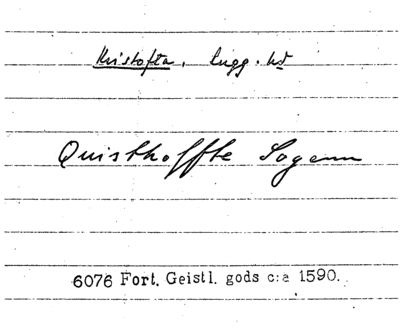 Kristofta, Lugg. hd
Quisthoffte Sogenn
6076 Fort. Geistl. gods c:a 1590.